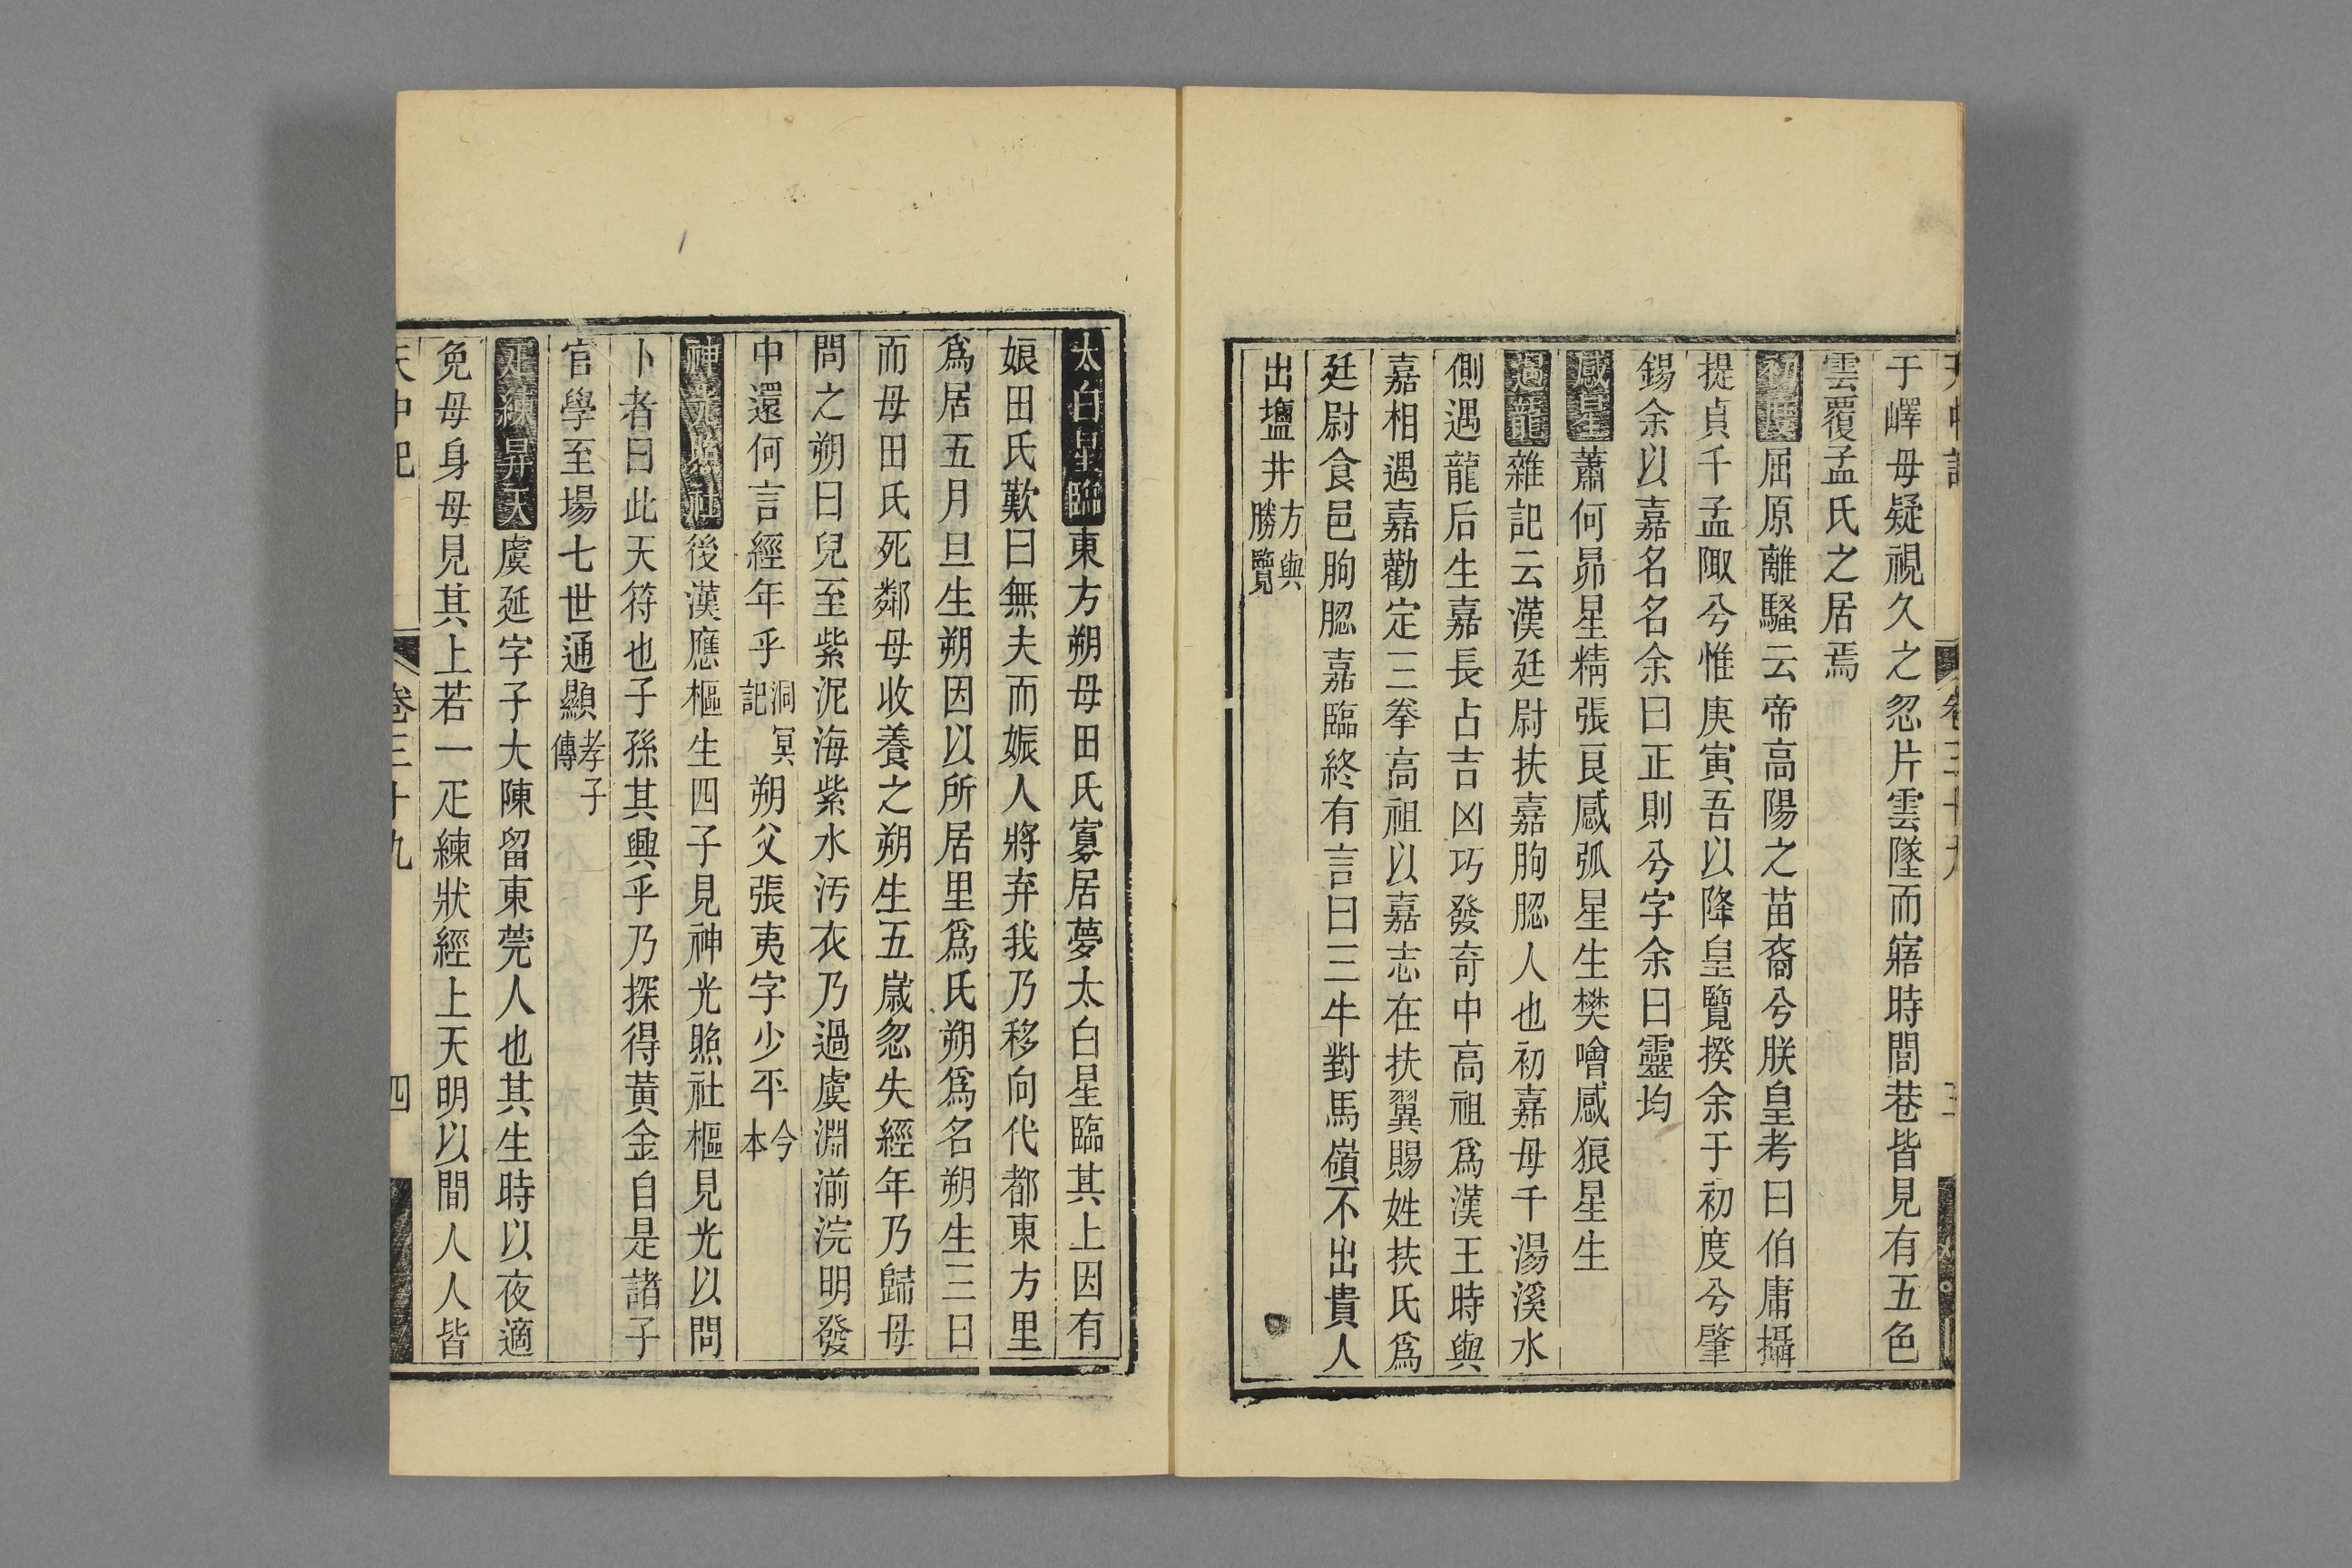 于嶧母疑視久之忽片雲墜而寤時閭巷皆見有五色
雲覆孟氏之居焉
初度屈原離騷云帝高陽之苗裔兮朕皇考曰伯庸攝
提貞千孟陬兮惟庚寅吾以降皇覽揆余于初度兮肇
錫余以嘉名名余曰正則兮字余曰靈均
感星蕭何昴星精張良感弧星生樊噲感狼星生
遇龍雜記云漢廷尉扶嘉朐䏰人也初嘉母千湯溪水
側遇龍后生嘉長占吉凶巧發奇中高祖爲漢王時與
嘉相遇嘉勸定三拳高祖以嘉志在扶翼賜姓扶氏爲
廷尉食邑朐䏰嘉臨終有言曰三牛對馬嶺不出貴人
出塩井方輿勝覽
太白星臨東方朔母田氏寡居夢太白星臨其上因有
娠田氏歎曰無夫而娠人將弃我乃移向代都東方里
爲居五月旦生朔因以所居里爲氏朔爲名朔生三日
而母田氏死鄰母收養之朔生五歲忽失經年乃歸母
問之朔曰兒至紫泥海紫水汚衣乃過虞淵湔浣明發
中還何言經年乎洞冥記朔父張夷字少平今本
神光照社後漢應樞生四子見神光照社樞見光以問
卜者曰此天符也子孫其興乎乃探得黃金自是諸子
官學至場七世通顯孝子傳
疋練昇天虞延字子大陳留東莞人也其生時以夜適
免母身母見其上若一疋練狀經上天明以問人人皆
天中記 卷三十九 四